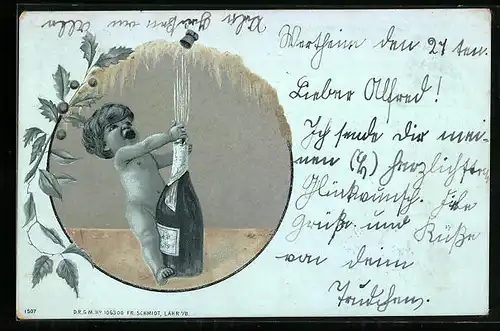 Viele Grüßen von Allen
Wertheim den 27 ten.
Lieber Alfred!
Ich sende Dir mei-
nen (½) herzlichsten
Glückwunsch. Viele
Grüße und Küße
von Deiner
Trudchen.
1507
D.R.G.M. Nº 106306 FR. SCHMIDT, LAHR ⁷/B.